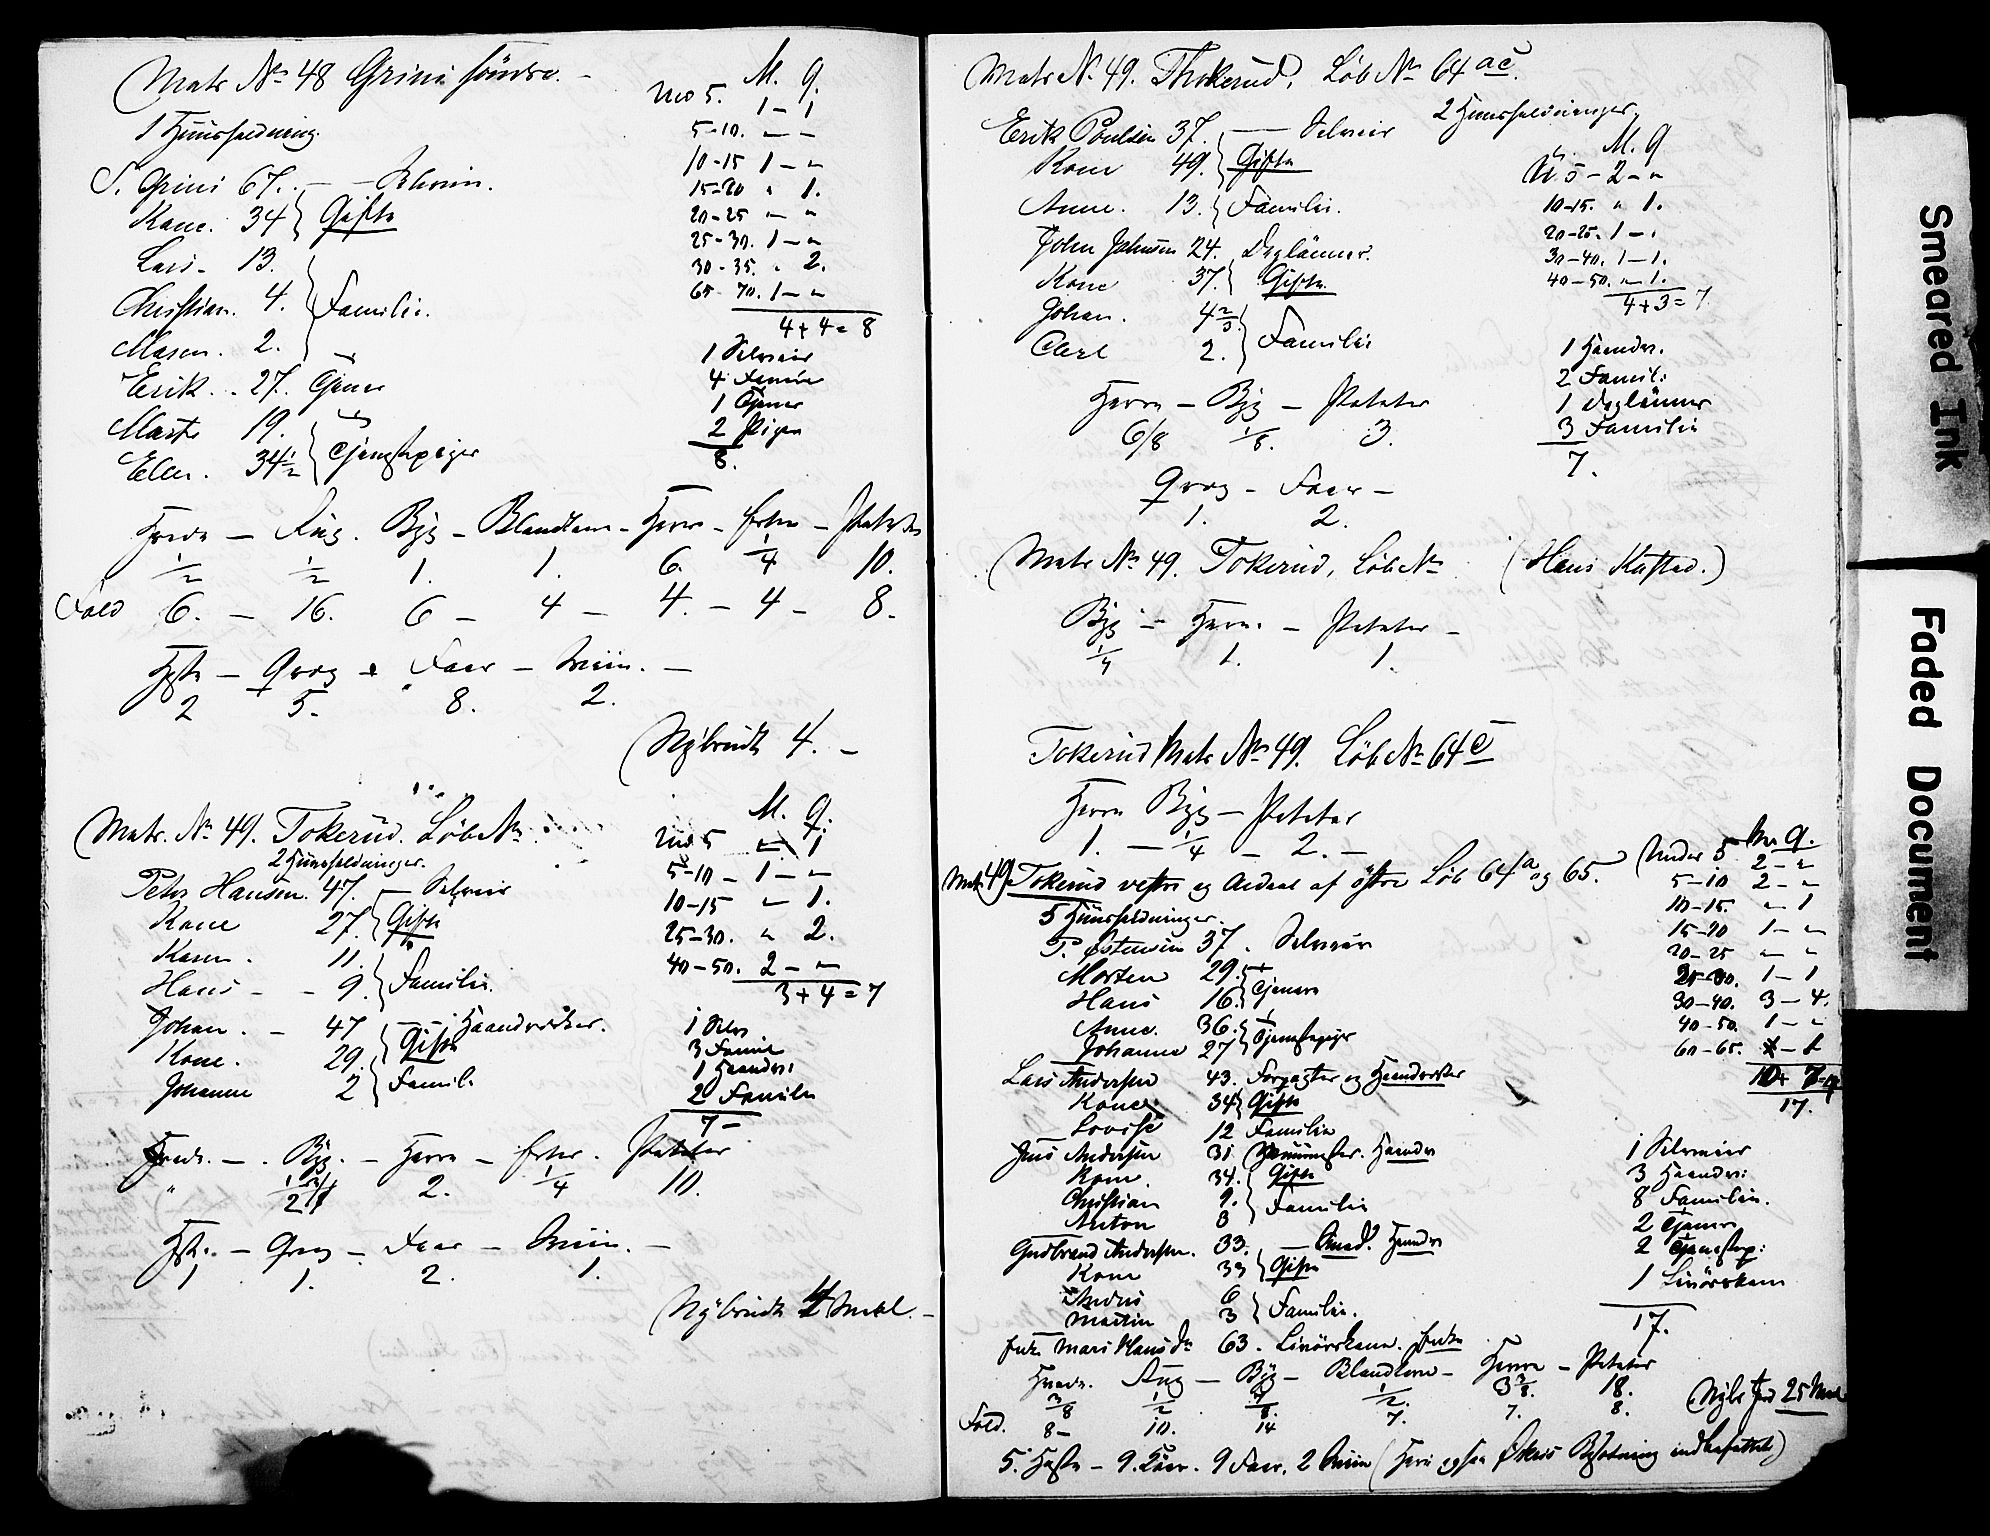 Matr Nr 48 Grini søndre. –
M. Q.
Und 5. 1 – 1
1 Huusholdning.
5–10. „ – „
10–15 1 – „
S. Grini 67. – – Selveier.
15–20 „ 1.
Kone. 34 Gifte
20–25 „ – „
25–30. 1 – „
Lars – 13.
30–35. „ 2.
65–70. 1 – „
Christian. 4. Familie.
4 + 4 = 8
Maren. 2.
1 Selveier
4 Familie
Erik. . 27. Tjener
1 Tjener
Marte 19.
2 Piger
Ellen. 34 1/2 Tjenestepiger
8.
Hvede – Rug. Byg – Blandkorn – Havre – Erter – Poteter
1/2 1/2 1. 1. 6. 1/4 10.
Fold 6. – 16. 6 – 4 – 4. – 4 – 8.
Heste – Qvæg – Faar – Sviin. –
2 5. 8. 2.
Nybrudt 4. –
Matr. Nr 49. Tokerud. Løb Nr
M. Q.
Und 5 „ 1
2 Huusholdninger.
5–10 – 1 – „
Peter Hansen. 47. – Selveier
10–15 „ 1.
Kone 27. Gifte
25–30. „ 2.
Karen. 11.
40–50. 2 – „
Hans – – 9. Familie.
3 + 4 = 7
Johan. – 47 – – Haandverker.
1 Selv
Kone. 29. Gifte
3 Familie
1 Haandv:
Johanne 2 Famili.
2 Familie
7 –
Hvede. – . Byg. – Havre – Erter. Poteter
„ 2. 1/4 10.
Heste. – Qvæg – Faar – Sviin. –
1 1. 2. 1.
Nybrudt 4 Maal. –
Matr N. 49. Thokerud, Løb Nr 64 ac.
2 Huusholdninger.
Erik Poulsen 37. – Selveier
M. Q
Kone 49. Gifte
U. 5 – 2 – „
Anne. 13. Familie.
10–15. „ 1.
20–25. 1 – „
John Johnsen 24. Daglønner.
30–40. 1 – 1.
Kone 37. Gifte
40–50. „ – 1.
4 + 3 = 7.
Johan. 4 2/3
Carl 2. Familie
1 Haandv.
2 Famili:
Havre – Byg – Poteter
1 Daglønner
6/8 1/8. 3.
3 Familie
7.
Qvæg – Faar –
1. 2.
Matr Nr 49. Tokerud, Løb Nr (Hans Kastad.)
Byg – Havre. – Poteter –
1/4 1. 1.
Tokerud Matr Nr 49. Løb Nr 64 c
Havre Byg – Poteter
1. – 1/4 – 2. –
Matr 49. Tokerud vestre og Andeel af østre Løb 64 a og 65.
M. Q.
Under 5 2 – „
5–10 2 – „
5 Huusholdninger.
10–15. „ 1
P. Østensen 37. Selveier
15–20 1 – „
20–25 „ „
Morten 29.
25–30. 1 – 1
Hans 16. Tjenere
30–40. 3 – 4.
Anne. 36.
40–50. 1 – „
Johanne 27 Tjenestepiger
60–65. 1
Lars Andersen 43. Forpagter og Haandverker
17.
Kone 34 Gifte
Lovise 12 Familie
Jens Andersen 31. Haandv
1 Selveier
Kone. 34. Gifte
3 Haandv:
Christian 9.
8 Familie.
Anton 3 Familie
2 Tjenere
Gudbrand Andersen. 33. – Smed. Haandv
2 Tjenestep:
Kone 33 Gifte
1
6
Martin 3 Familie.
17.
Enke Mari Hansdr 63. Enke
Hvede. Rug – Byg – Blandkorn – Havre – Poteter
3/8 1/2 1/2. 3 3/8. 18.
Fold. 8 – 10. 14 7. 7. 8.
25 Maal
5. Heste – 9. Køer. 9 Faar. 2 Sviin (Heri ogsaa Østres Besætning indbefattet)
Smeared Ink
Faded Document